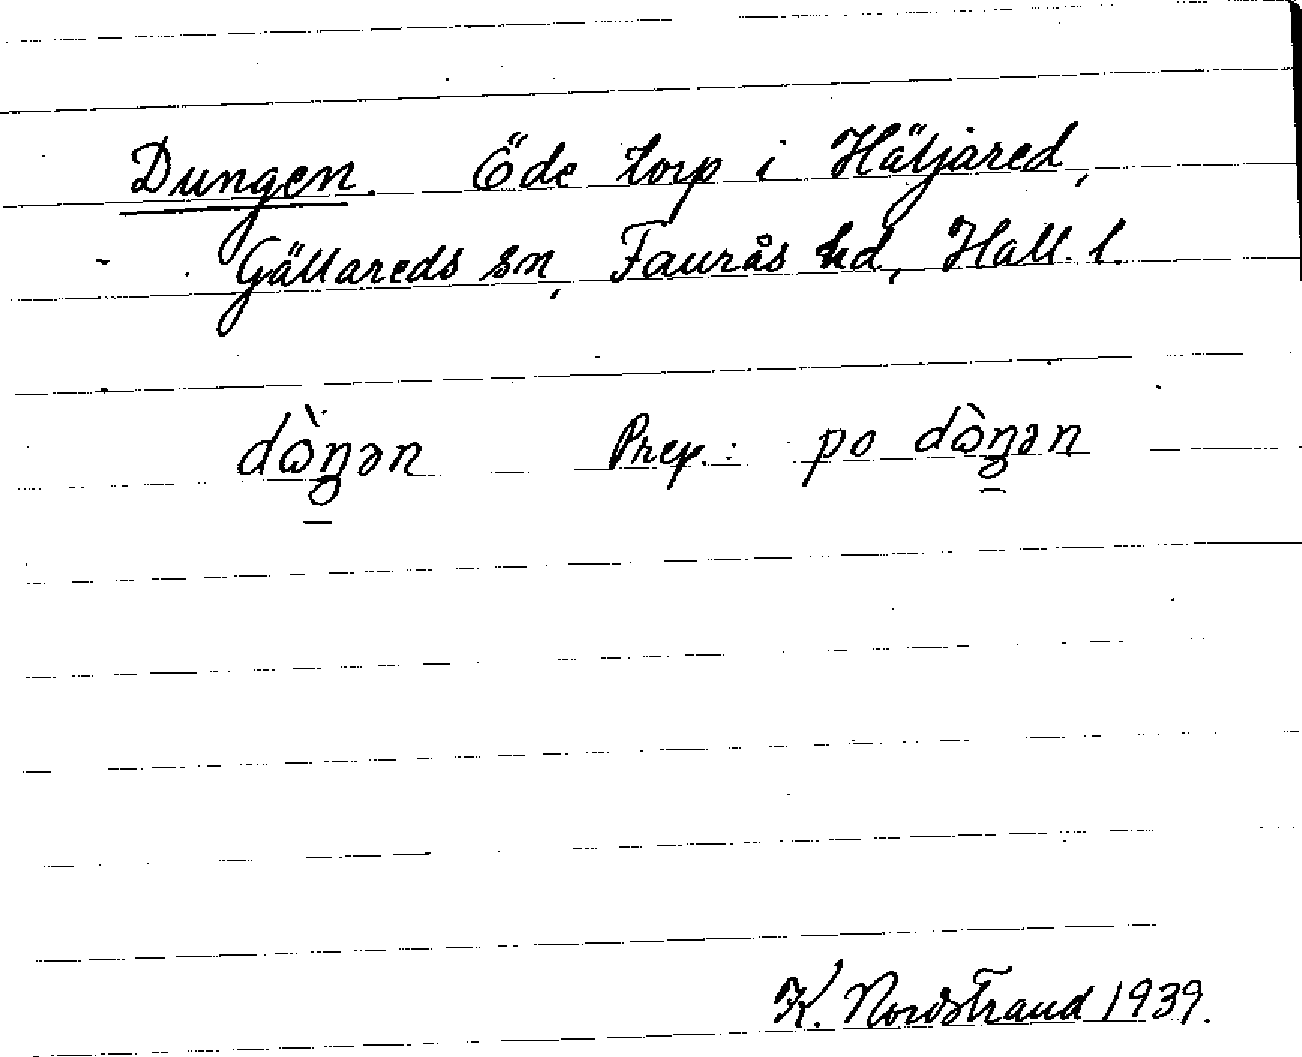 Dungen. Öde torp i Häljared,
Gällareds sn, Faurås hd, Hall. l.
dὼŋən Prep.: po dὼŋən
K. Nordstrand 1939.